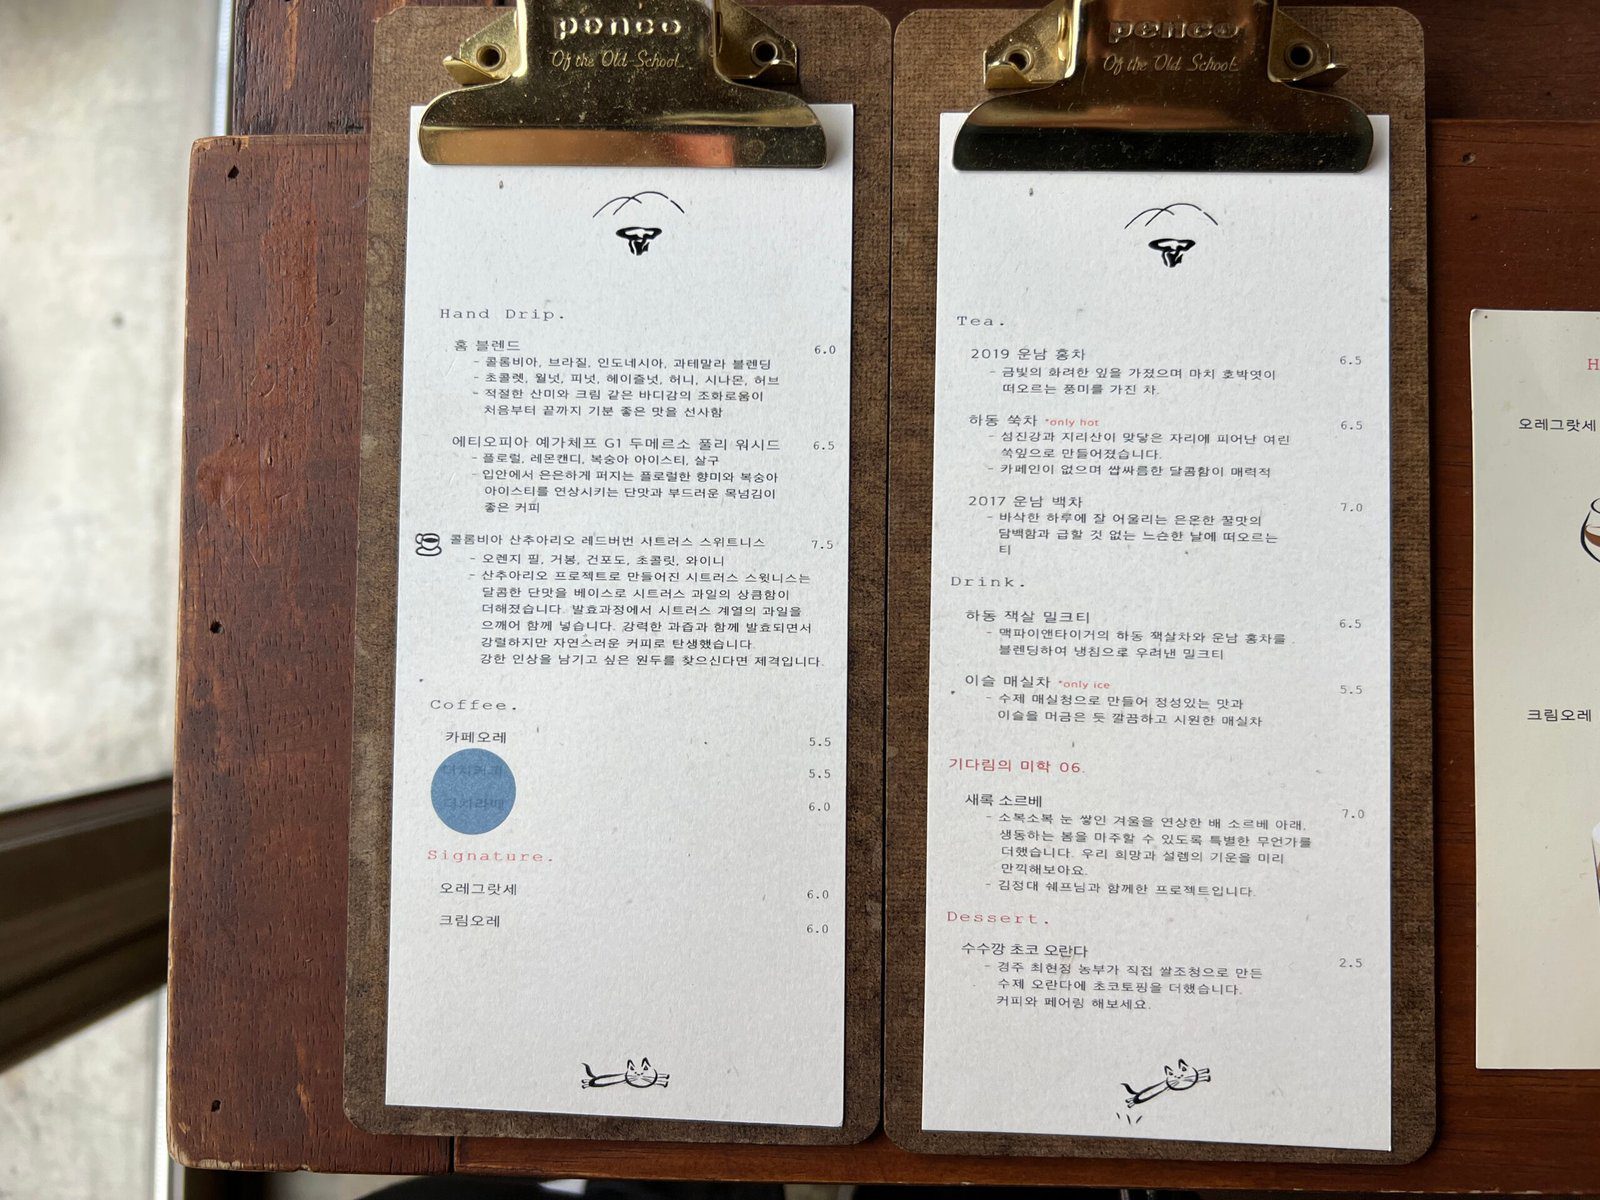 penco
Of the Old School.
Hand Drip.
홈 블렌드 6.0
- 콜롬비아, 브라질, 인도네시아, 과테말라 블렌딩
- 초콜렛, 월넛, 피넛, 헤이즐넛, 허니, 시나몬, 허브
- 적절한 산미와 크림 같은 바디감의 조화로움이
처음부터 끝까지 기분 좋은 맛을 선사함
에티오피아 예가체프 G1 두메르소 풀리 워시드 6.5
- 플로럴, 레몬캔디, 복숭아 아이스티, 살구
- 입안에서 은은하게 퍼지는 플로럴한 향미와 복숭아
아이스티를 연상시키는 단맛과 부드러운 목넘김이
좋은 커피
콜롬비아 산추아리오 레드버번 시트러스 스위트니스 7.5
- 오렌지 필, 거봉, 건포도, 초콜릿, 와이니
- 산추아리오 프로젝트로 만들어진 시트러스 스윗니스는
달콤한 단맛을 베이스로 시트러스 과일의 상큼함이
더해졌습니다. 발효과정에서 시트러스 계열의 과일을
으깨어 함께 넣습니다. 강력한 과즙과 함께 발효되면서
강렬하지만 자연스러운 커피로 탄생했습니다.
강한 인상을 남기고 싶은 원두를 찾으신다면 제격입니다.
Coffee.
카페오레 5.5
더치커피 5.5
더치라떼 6.0
Signature.
오레그랏세 6.0
크림오레 6.0
penco
Of the Old School.
Tea.
2019 운남 홍차 6.5
- 금빛의 화려한 잎을 가졌으며 마치 호박엿이
떠오르는 풍미를 가진 차.
하동 쑥차 *only hot 6.5
- 섬진강과 지리산이 맞닿은 자리에 피어난 여린
쑥잎으로 만들어졌습니다.
- 카페인이 없으며 쌉싸름한 달콤함이 매력적
2017 운남 백차 7.0
- 바삭한 하루에 잘 어울리는 은은한 꿀맛의
담백함과 급할 것 없는 느슨한 날에 떠오르는
티
Drink.
하동 잭살 밀크티 6.5
- 맥파이앤타이거의 하동 잭살차와 운남 홍차를
블렌딩하여 냉침으로 우려낸 밀크티
이슬 매실차 *only ice 5.5
- 수제 매실청으로 만들어 정성있는 맛과
이슬을 머금은 듯 깔끔하고 시원한 매실차
기다림의 미학 06.
새록 소르베 7.0
- 소복소복 눈 쌓인 겨울을 연상한 배 소르베 아래,
생동하는 봄을 마주할 수 있도록 특별한 무언가를
더했습니다. 우리 희망과 설렘의 기운을 미리
만끽해보아요.
- 김정대 쉐프님과 함께한 프로젝트입니다.
Dessert.
수수깡 초코 오란다 2.5
- 경주 최현정 농부가 직접 쌀조청으로 만든
수제 오란다에 초코토핑을 더했습니다.
커피와 페어링 해보세요.
H
오레그랏세
크림오레